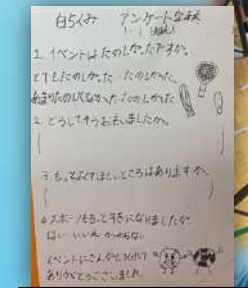 白ぐみ アンケート
1. イベントはたのしかったですか。
とてもたのしかった たのしかった
あまりたのしくなかった つまらなかった
2. どうしてそうおもいましたか。
3. もっとよくてほしいところはありますか。
4. スポーツをもっとすきになりましたか
はい いいえ かわらない
イベントにさんかしてくれて
ありがとうございました。